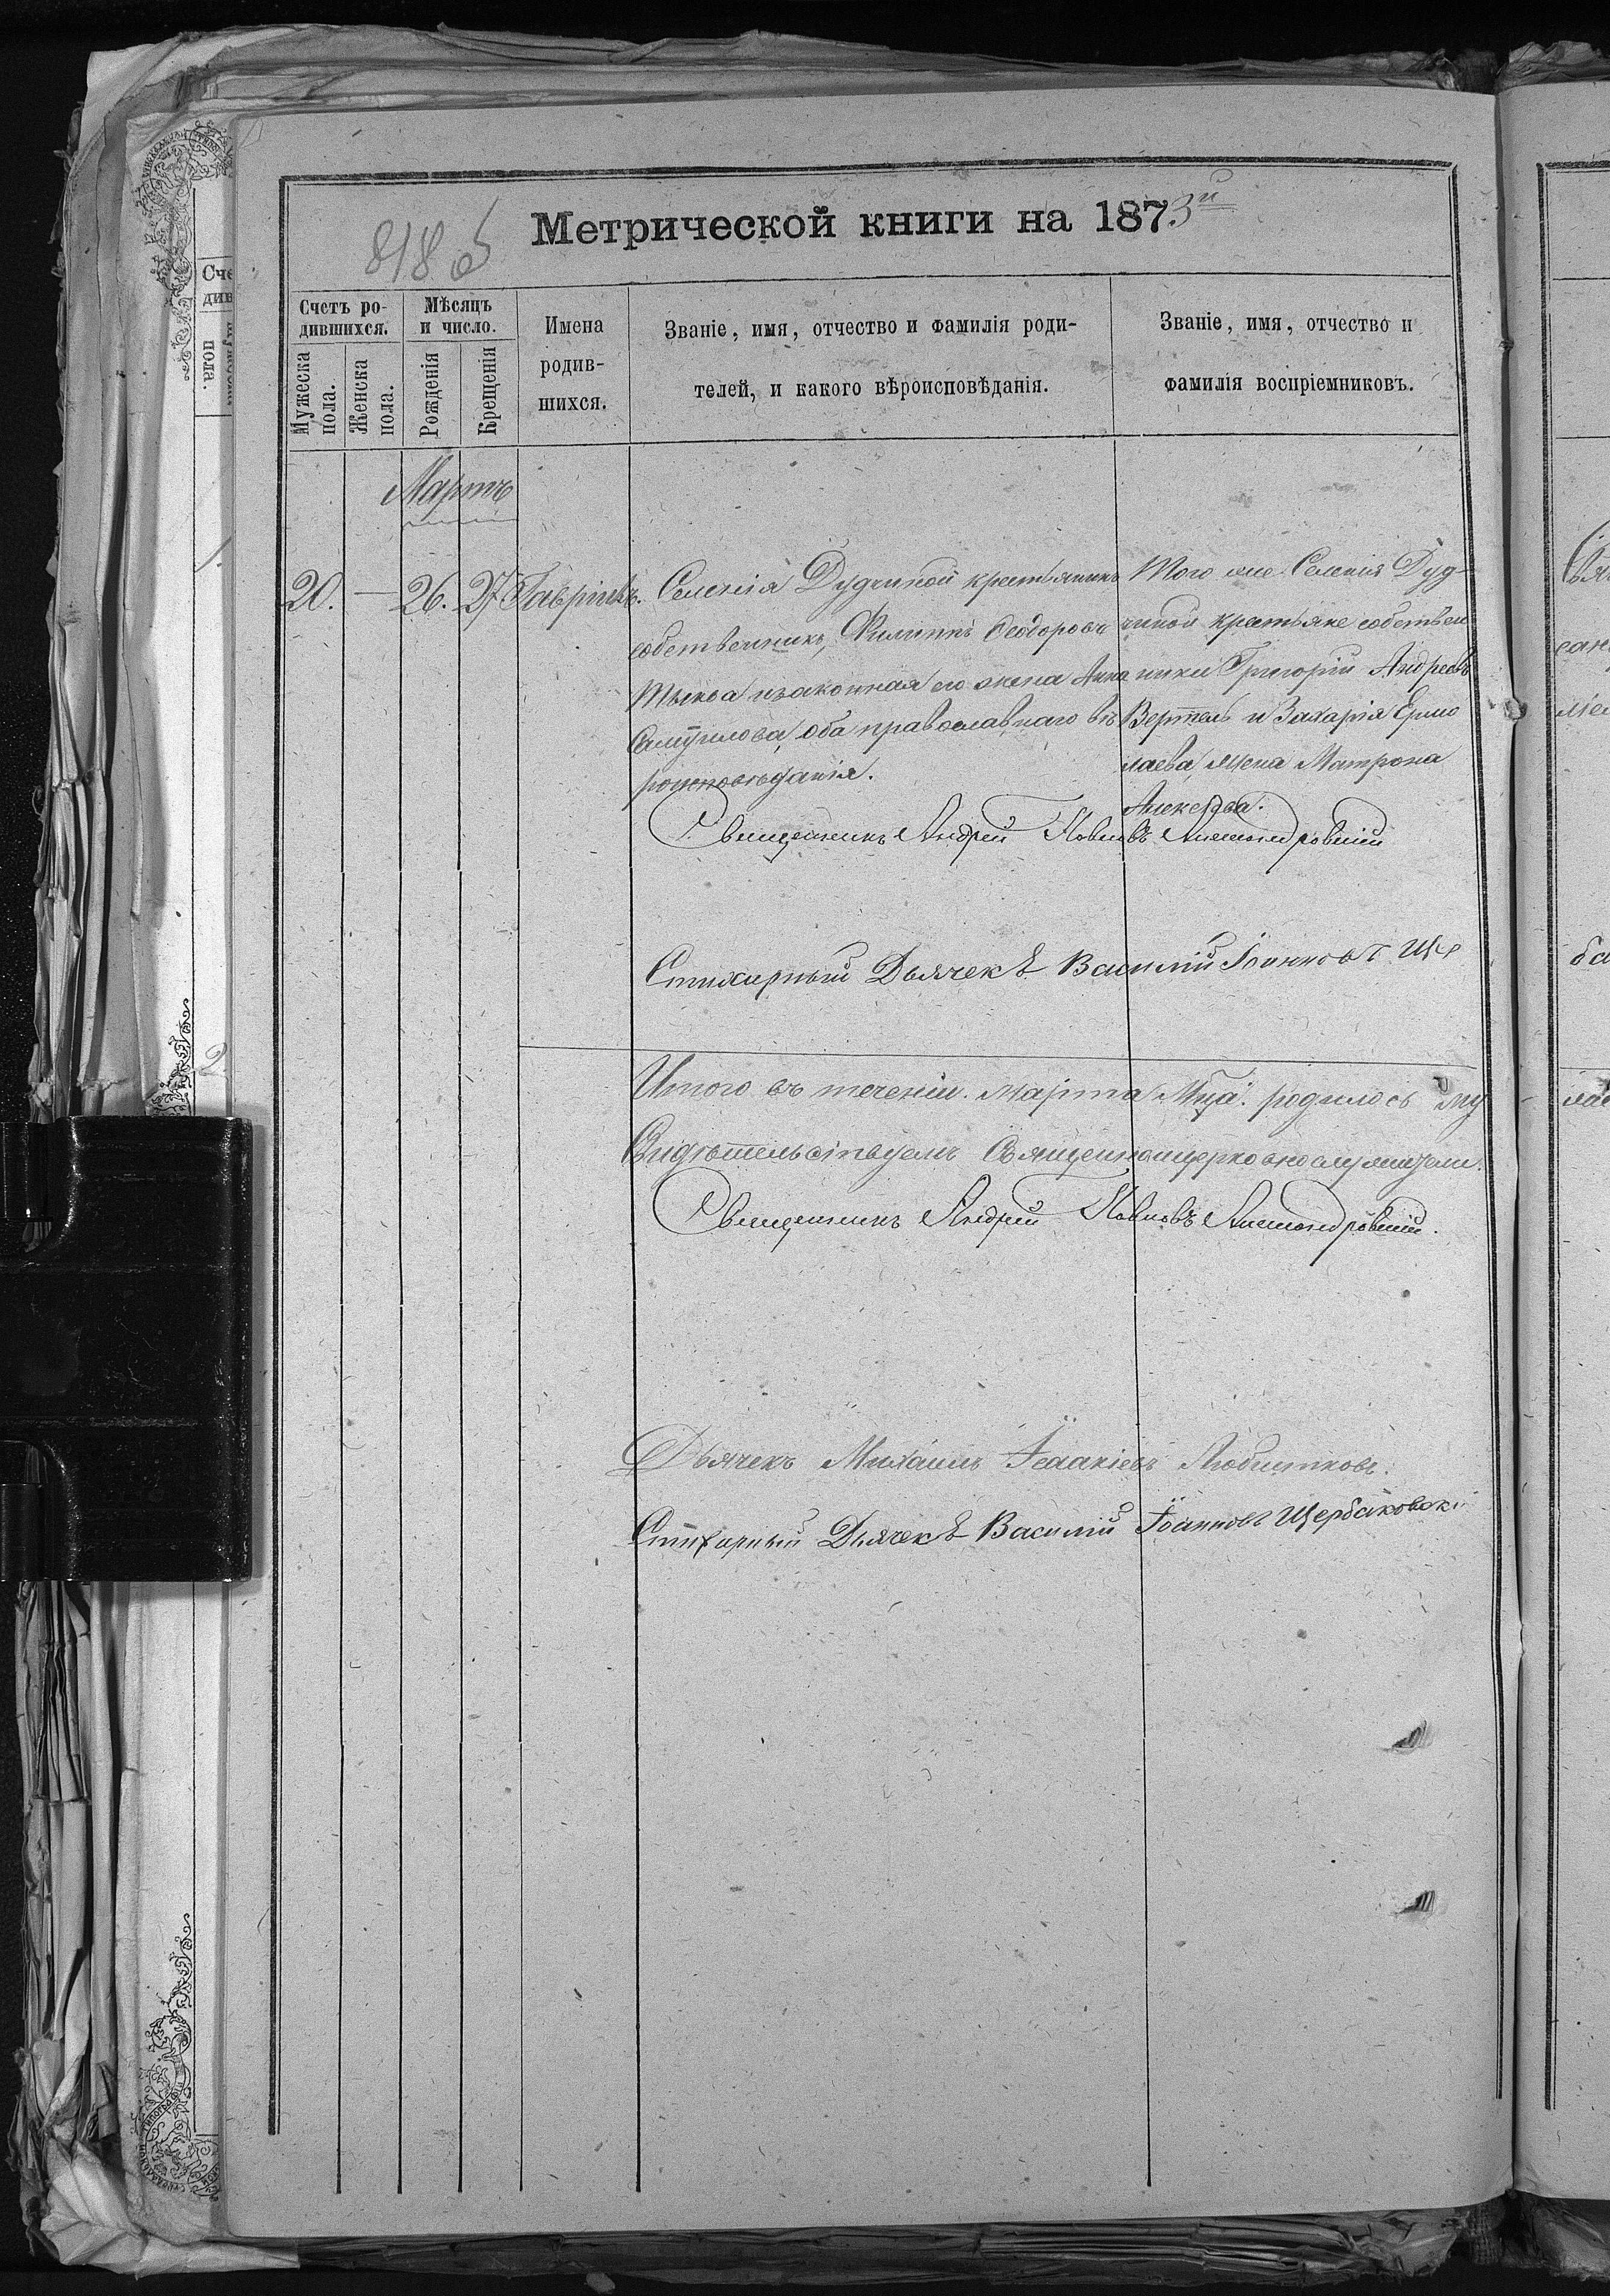 818 об
Метрической книги на 1873й
Счетъ ро-
дившихся.
Мужеска
пола.
Женска
пола.
Мѣсяцъ
и число.
Рожденія
Крещенія
Имена
родив-
шихся.
Званіе, имя, отчество и фамилія роди-
телей, и какого вѣроисповѣданія.
Званіе, имя, отчество и
фамилія воспріемниковъ.
Мартъ
20. — 26. 27 Гавріилъ.
Селенія Дудчиной крестьянинъ
собственникъ, Филиппъ Ѳеодоровъ
Тыква и законная его жена Анна
Самуилова, оба православнаго вѣ
роисповѣданія.
Того же Селенія Дуд-
чиной крестьяне собствен
ники Григорій Андреевъ
Вертель и Захарія Ермо
лаева жена Матрона
Алексѣева.
Священникъ Андрей Павловъ Александровскій
Стихарный Дьячекъ Василій Іоанновъ Ще
Итого въ теченіи марта мца родилось му
Свидѣтельствуемъ Священноцерковнослужители.
Священникъ Андрей Павловъ Александровскій.
Дьячекъ Михаилъ Исаакіевъ
Стихарный Дьячекъ Василій Іоанновъ Щербаковскій